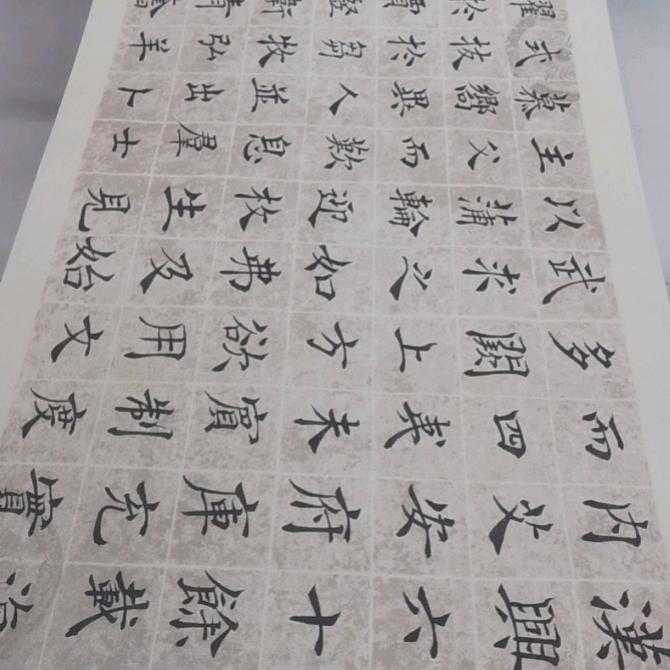 漢興六十餘載
内艾安府庫充實
而四夷未賓制度
多闕上方欲用文
武求之如弗及始
以蒲輪迎枚生見
主父而歎息羣士
慕嚮異人並出卜
式拔於芻牧弘羊
擢於賈豎衛青